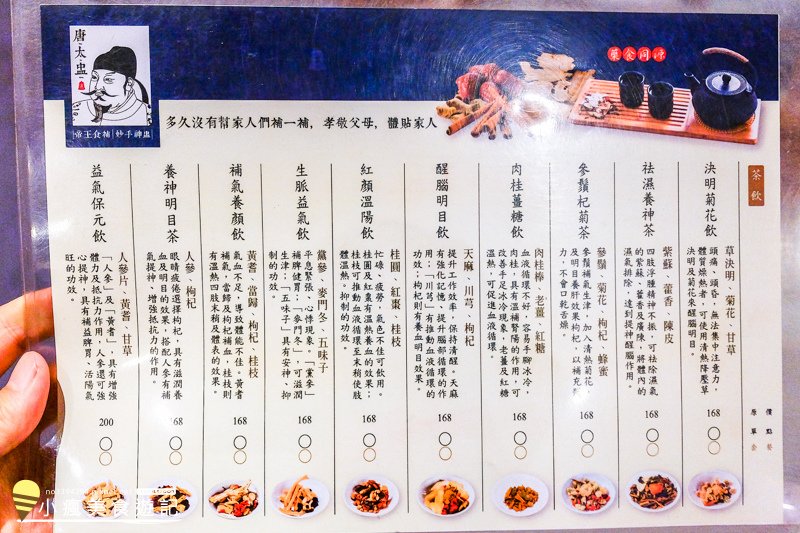 唐太盅
帝王食補 妙手神盅
藥食同源
多久沒有幫家人們補一補，孝敬父母，體貼家人
茶飲
價 點
原 單 套 餐
決明菊花飲
草決明、菊花、甘草
頭痛、頭昏、無法集中注意力，
體質燥熱者，可使用清熱降壓草
決明及菊花來醒腦明目。
168
祛濕養神茶
紫蘇、藿香、陳皮
四肢浮腫精神不振，可祛除濕氣
的紫蘇、藿香及廣陳，將體內的
濕氣排除，達到提神醒腦作用。
168
參鬚杞菊茶
參鬚、菊花、枸杞、蜂蜜
參鬚補氣生津，加入清熱菊花，
及明目養肝效果枸杞，以補充
力，不會口乾舌燥。
168
肉桂薑糖飲
肉桂棒、老薑、紅糖
血液循環不好，容易手腳冰冷，
肉桂，具有溫補腎陽的作用，可
改善手足冰冷現象，老薑及紅糖
溫熱，可促進血液循環。
168
醒腦明目飲
天麻、川芎、枸杞
提升工作效率，保持清醒，天麻
有強化記憶，提升腦部循環的作
用；「川芎」有推動血液循環的
功效；枸杞則有養血明目效果。
168
紅顏溫陽飲
桂圓、紅棗、桂枝
忙碌、疲勞、氣色不住可飲用。
桂圓及紅棗有溫熱養血的效果；
桂枝可推動血液循環至末稍使肢
體溫熱。抑制的功效。
168
生脈益氣飲
黨參、麥門冬、五味子
平息緊張、心悸現象，「黨參」
補脾健胃；「麥門冬」，可滋潤
生津；「五味子」具有安神、抑
制的功效。
168
補氣養顏飲
黃耆、當歸、枸杞、桂枝
氣血不足，導致體能不佳。黃耆
補氣，當歸及枸杞補血，桂枝則
有溫熱四肢末稍及體表的效果。
168
養神明目茶
人參、枸杞
眼睛疲倦選擇枸杞，具有滋潤養
血及明目的效果，搭配人參有補
氣提神，增強抵抗力的作用。
68
益氣保元飲
人參片、黃耆、甘草
「人參」及「黃耆」，具有增強
體力及抵抗力作用，人參還可強
心提神，具有補益脾胃、活陽氣
旺的功效。
200
小瘋美食遊記